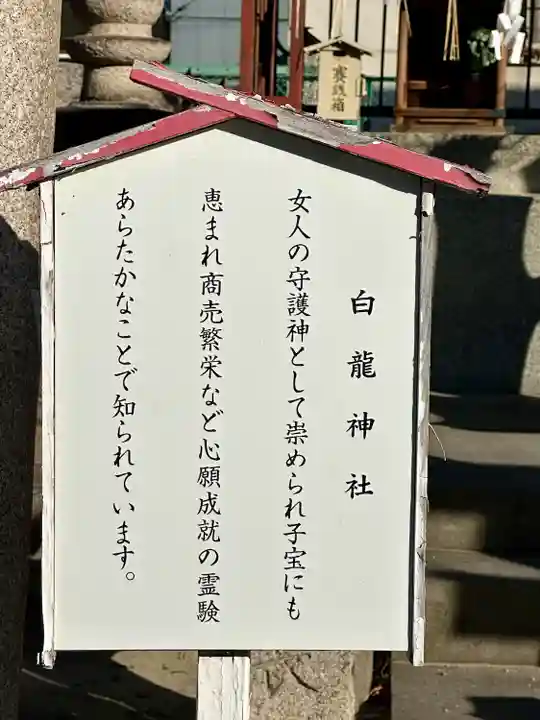 白龍神社
女人の守護神として崇められ子宝にも
恵まれ商売繁栄など心願成就の霊験
あらたかなことで知られています。
賽銭箱